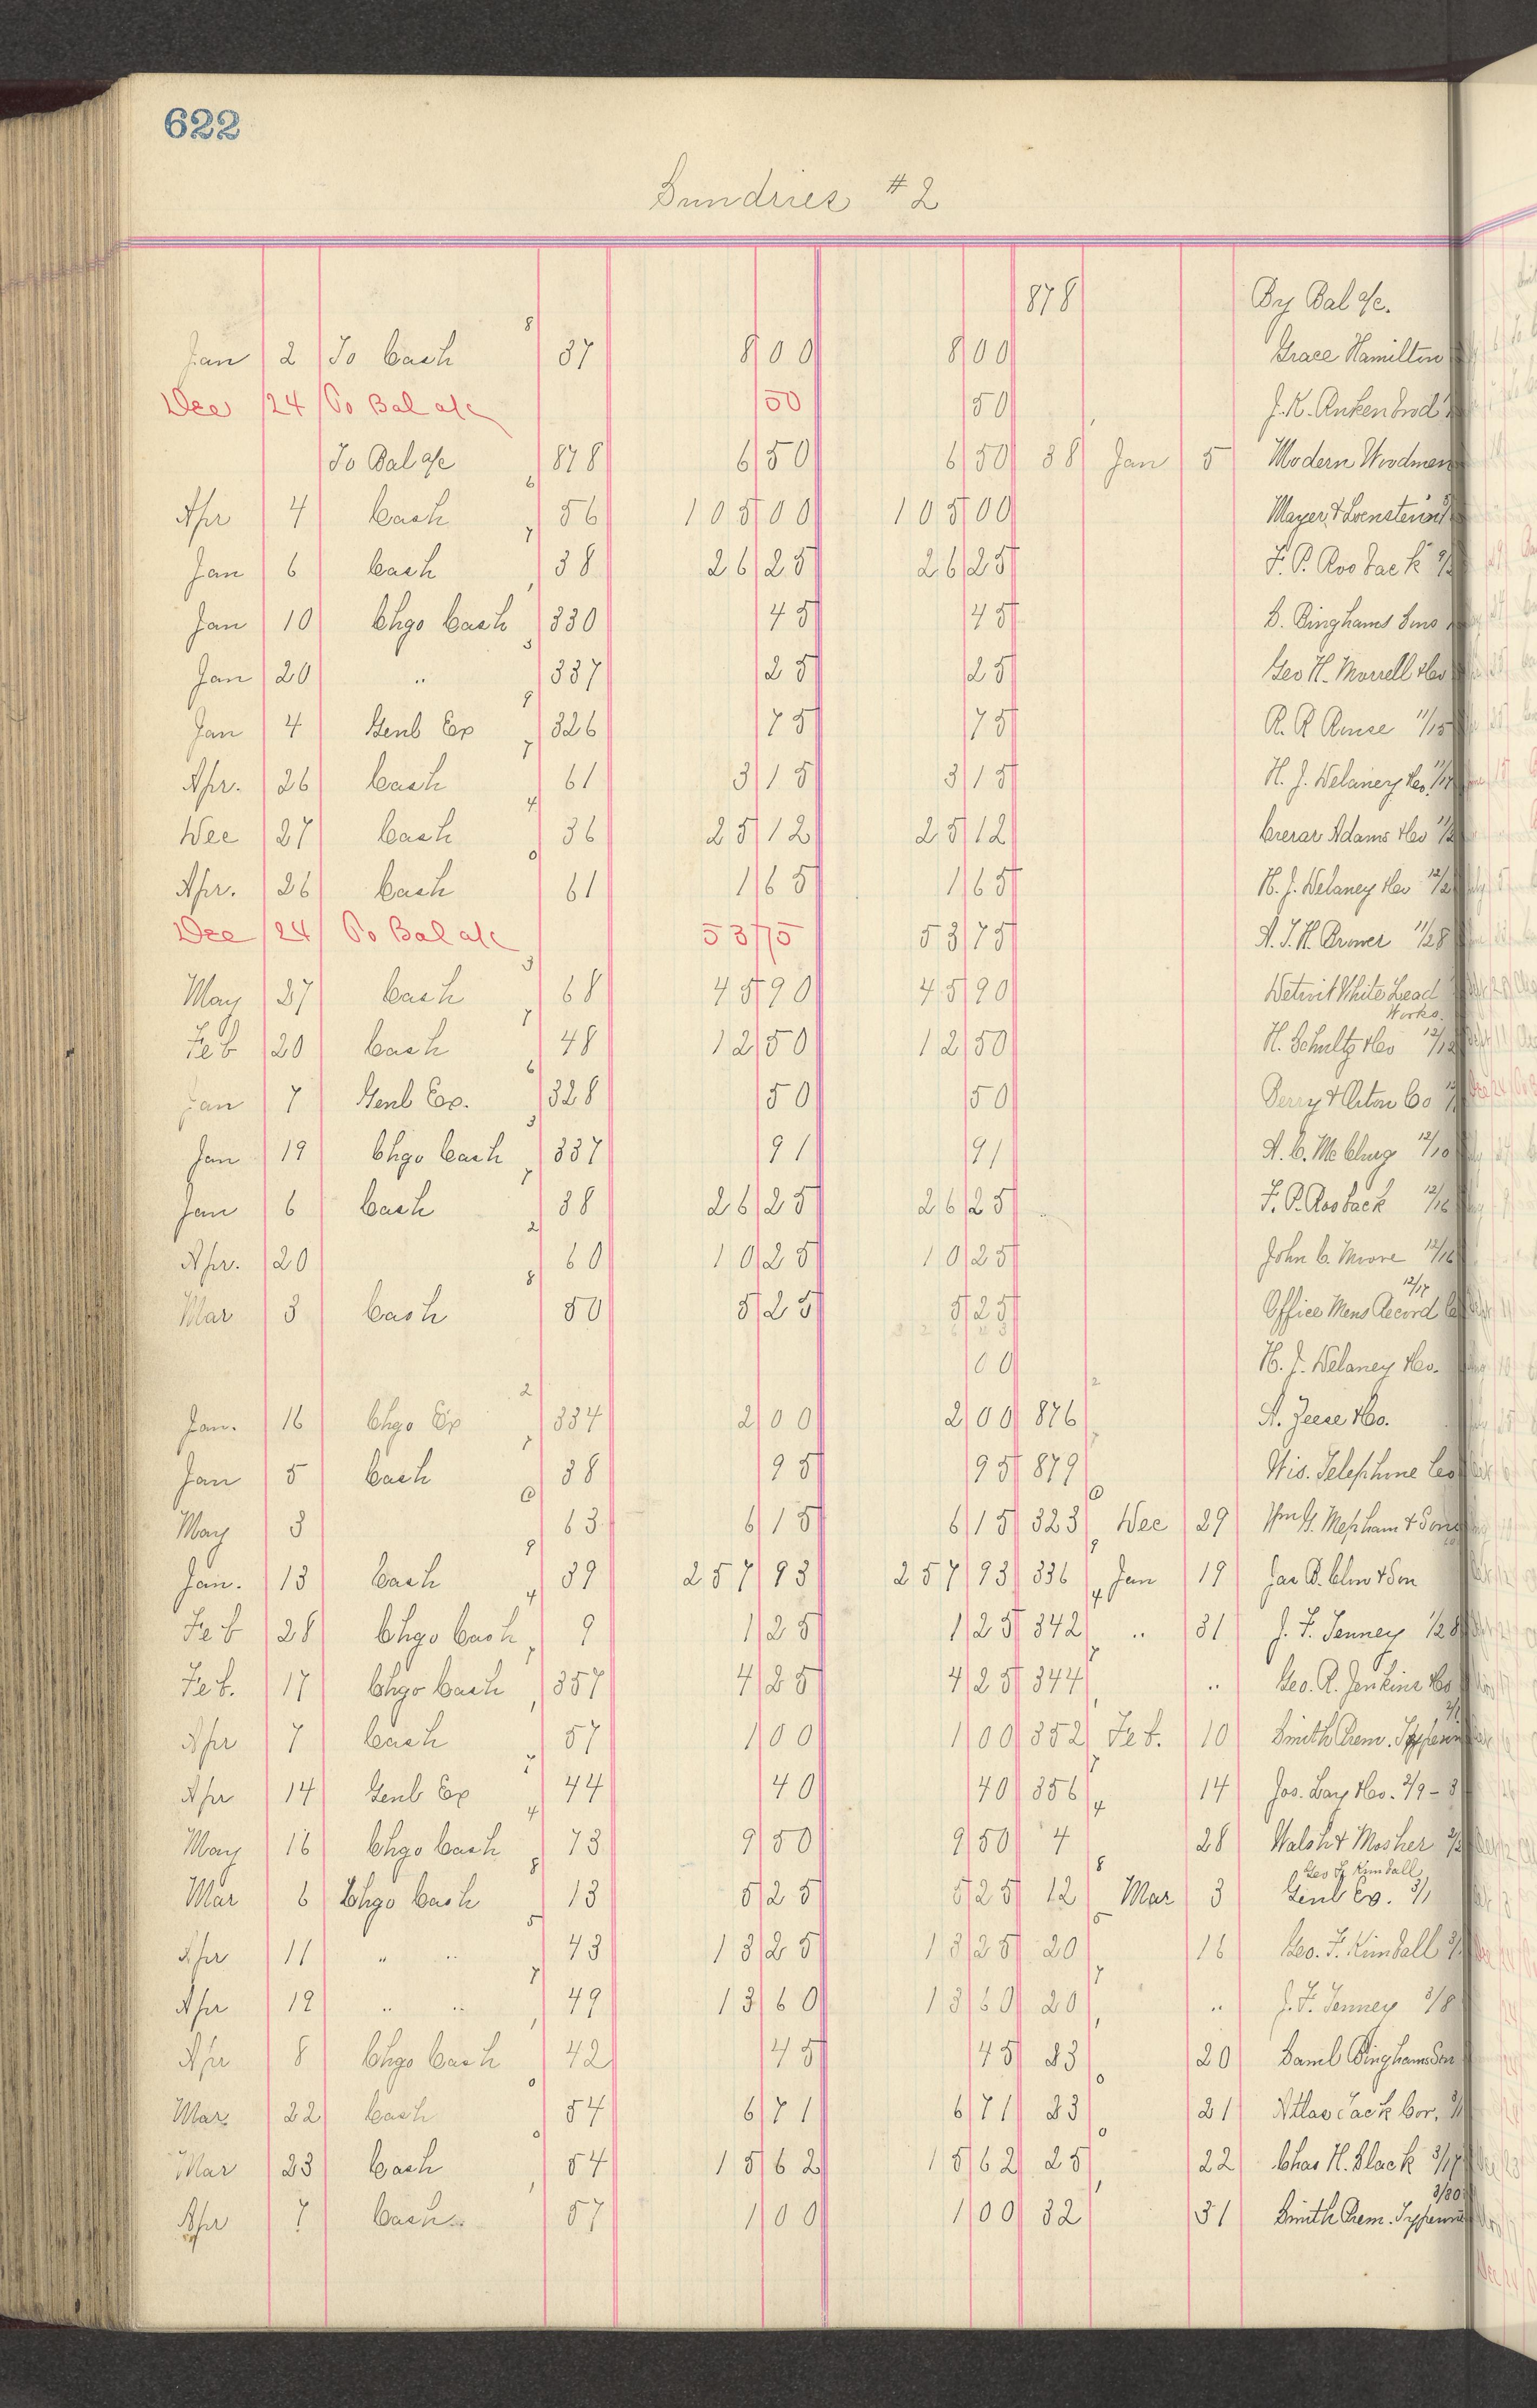 622
Sundries #2
878 By Bal a/c.
Jan 2 To Cash 8 37 8 00 8 00 Grace Hamilton
Dec 24 To Bal a/c 50 50 J. K. Ankenbrod
To Bal a/c 878 6 50 6 50 38 Jan 5 Modern Woodmen
Apr 4 Cash 6 56 105 00 105 00 Mayer &
Jan 6 Cash 7 38 26 25 26 25 F. P. Rosback
Jan 10 Chgo Cash 330 45 45 S. Binghams Sons
Jan 20 " 3 337 25 25 Geo H. Morrell &Co
Jan 4 Genl Ex 9 326 75 75 R. R. 11/15
Apr. 26 Cash 7 61 3 15 3 15 H. J. Delaney &Co.
Dec 27 Cash 4 36 25 12 25 12 Crerar Adams &Co
Apr. 26 Cash 0 61 1 65 1 65 H. J. Delaney &Co
Dec 24 To Bal a/c 53 75 53 75 A. T. H. Brower 11/28
May 27 Cash 3 68 45 90 45 90 Detroit White Lead Works
Feb 20 Cash 7 48 12 50 12 50 H. Schultz &Co
Jan 7 Genl Ex. 6 328 50 50 Co
Jan 19 Chgo Cash 3 337 91 91 A. C. McClurg 12/10
Jan 6 Cash 7 38 26 25 26 25 F. P. Rosback 12/16
Apr. 20 2 60 10 25 10 25 John C. Moore 12/16
Mar 3 Cash 8 50 5 25 5 25 Office Mens Record Co 12/17
00 H. J. Delaney &Co.
Jan. 16 Chgo Ex 2 334 2 00 2 00 876 A. Zeese &Co.
Jan 5 Cash 7 38 95 95 879 Wis. Telephone Co
May 3 63 6 15 6 15 323 Dec 29 Wm G. Mepham & Sons
Jan. 13 Cash 9 39 257 93 257 93 336 Jan 19 Jas B. Clow & Son
Feb 28 Chgo Cash 4 9 1 25 1 25 342 4 " 31 J. F. Tenney 1/28
Feb. 17 Chgo Cash 357 4 25 4 25 344 " Geo. R. Jenkins &Co
Apr 7 Cash 57 1 00 1 00 352 Feb. 10 Smith Prem.
Apr 14 Genl Ex 7 44 40 40 356 7 14 Jos. Lay &Co. 2/9 - 3
May 16 Chgo Cash 4 73 9 50 9 50 4 4 28 Walsh & Mosher
Mar 6 Chgo Cash 8 13 5 25 5 25 12 8 Mar 3 Geo F. Kimball Genl Ex. 3/1
Apr 11 " " 5 43 13 25 13 25 20 5 16 Geo. F. Kimball
Apr 19 " " 7 49 13 60 13 60 20 7 " J. F. Tenney 3/8
Apr 8 Chgo Cash 42 45 45 23 20 Saml Bingham Son
Mar 22 Cash 0 54 6 71 6 71 23 0 21 Atlas Tack Cor.
Mar 23 Cash 0 54 15 62 15 62 25 0 22 Chas H. Black 3/17
Apr 7 Cash 57 1 00 1 00 32 31 Smith Prem. 3/30